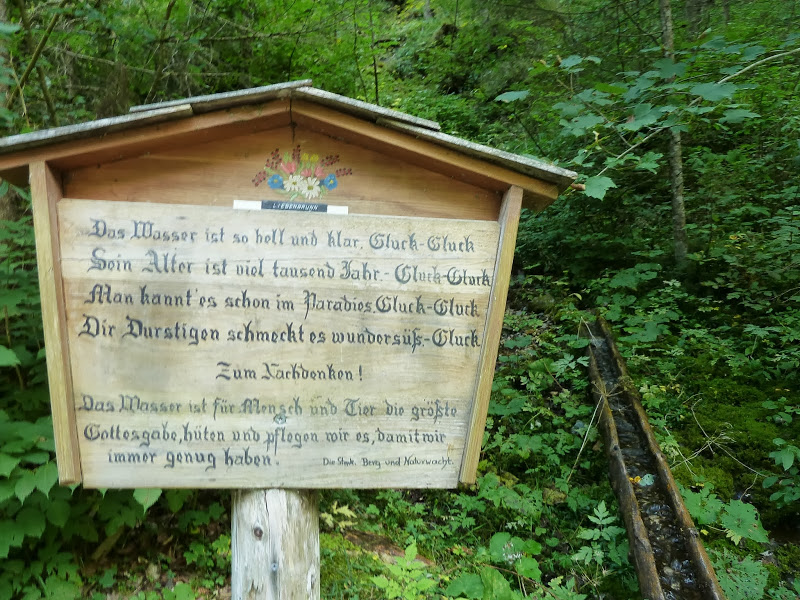 LIEBENBRUNN
Das Wasser ist so hell und klar, Gluck-Gluck
Sein Alter ist viel tausend Jahr.- Gluck-Gluck
Man kannt'es schon im Paradies, Gluck-Gluck
Dir Durstigen schmeckt es wundersüß,-Gluck
Zum Nachdenken!
Das Wasser ist für Mensch und Tier die größte
Gottesgabe, hüten und pflegen wir es, damit wir
immer genug haben.
Die Steir. Berg und Naturwacht.